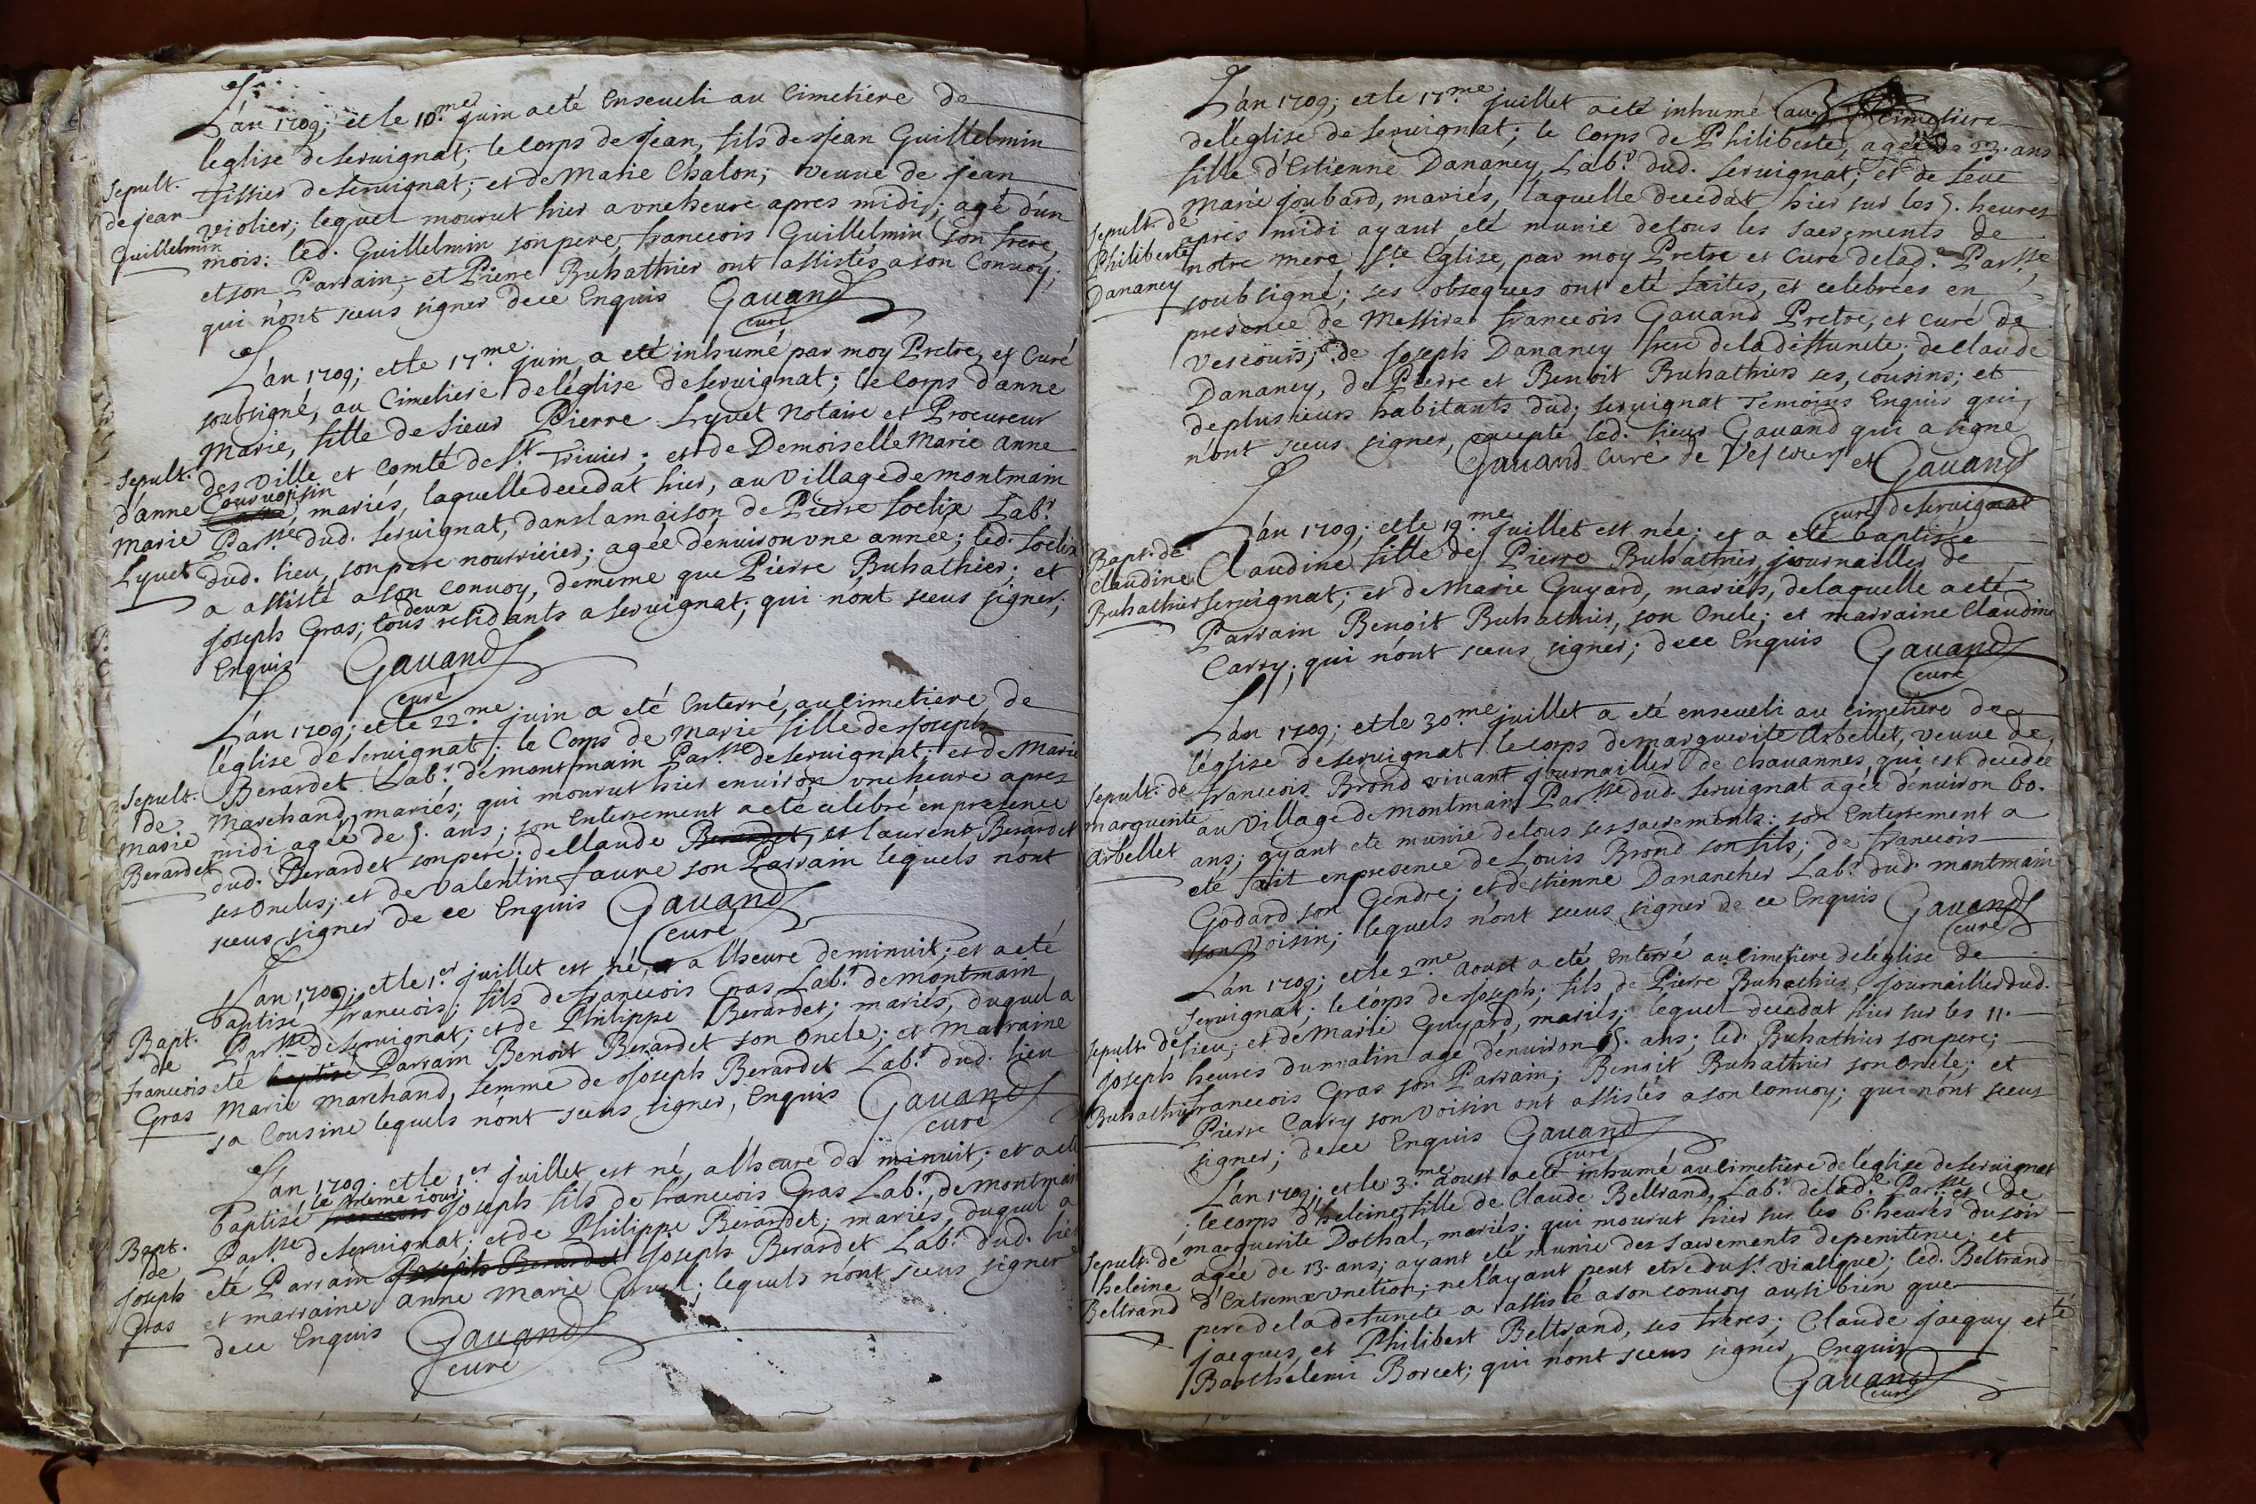 L'an 1709; et le 10.me juin a eté Enseueli au Cimetiere de
l'eglise de seruignat; le corps de Jean, fils de Jean Guillelmin
Sepult. Tissier de seruignat; et de Marie Chalon, veuue de jean
de jean violier; lequel mourut hier a vne heure apres midi; agé d'un
Guillelmin mois: led. Guillelmin son pere, francois Guillelmin son frere,
et son Parrain; et Pierre Buhathier ont assistés a son Conuoy;
qui n'ont sceus signer de ce Enquis Gauand
curé
L'an 1709; et le 17.me juin a eté inhumé par moy Pretre, et Curé
soubsigné, au Cimetiere de l'église de seruignat; le Corps d'anne
Marie, fille de sieur Pierre Lyuet Notaire et Procureur
Sepult. des Ville et Comté de St. Triuier; et de Demoiselle Marie Anne
d'anne Couruoisin mariés, laquelle decedat hier, au Village de montmain
Marie Par.sse dud. seruignat, dans la maison de Pierre foelix Lab.r
Lyuet dud. lieu, son pere nourricier; agée d'enuiron vne année; led. foelix
a assisté a son conuoy, de meme que Pierre Buhathier; et
Joseph Gras; tous deux residants a seruignat; qui n'ont sceus signer;
Enquis Gauand
curé
L'an 1709; et le 22.me juin a eté Enterré, au Cimetiere de
l'église de seruignat; le Corps de Marie fille de Joseph
Sepult. Berardet Lab.r de montmain Par.sse de seruignat; et de Marie
de Marchand, mariés; qui mourut hier enuiron vne heure apres
Marie midi agée de 5. ans; son Enterrement a eté celebré en presence
Berardet dud. Berardet son pere; de Claude Berardet, et laurent Berardet
ses Oncles; et de Valentin faure son Parrain lequels n'ont
sceus signer de ce Enquis Gauand
curé
L'an 1709; et le 1.er juillet est né, a l'heure de minuit; et a eté
baptisé francois; fils de francois Gras Lab.r de Montmain
Bapt. Par.sse de seruignat; et de Philippe Berardet; mariés, duquel a
de
francois eté baptisé Parrain Benoit Berardet son Oncle; et Marraine
Gras Marie Marchand, femme de Joseph Berardet Lab.r dud. lieu
sa Cousine lequels n'ont sceus signer, Enquis Gauand
curé
L'an 1709; et le 1.er juillet est né, a l'heure de minuit; et a eté
baptisé le meme jour; francois Joseph fils de francois Gras Lab.r de montmain
Bapt. Par.sse de seruignat; et de Philippe Berardet; mariés, duquel a
de
Joseph eté Parrain Joseph Berardet Joseph Berardet Lab.r dud. lieu
Gras et marraine anne Marie; lequels n'ont sceus signer
de ce Enquis Gauand
curé
L'an 1709; et le 17.me juillet a eté inhumé au Cimetiere
de l'eglise de seruignat; le Corps de Philiberte, agée de 23. ans
fille d'Estienne Dananey Lab.r dud. seruignat; et de feue
Marie Joubard, mariés, laquelle decedat hier sur les 5. heures
Sepult. de apres midi ayant eté munie de tous les sacrements de
Philiberte notre mere Ste Eglise, par moy Pretre et Curé de lad.e Par.sse
Dananey soubsigné; ses obseques ont eté faites, et celebrées en
presence de Messire francois Gauand Pretre, et curé de
Vescours; de Joseph Dananey frere de la deffuncte; de Claude
Dananey, de Pierre et Benoit Buhathiers ses cousins; et
de plusieurs habitants dud. seruignat Temoins Enquis qui
n'ont sceus signer, excepté led. sieur Gauand qui a signé
Gauand curé de Vescours et Gauand
curé de seruignat
L'an 1709; et le 19.me juillet est née; et a eté baptisée
Bapt. de
Claudine Claudine fille de Pierre Buhathier, journailler de
Buhathier seruignat; et de Marie Guyard, mariés, de laquelle a eté
Parrain Benoit Buhathier, son Oncle; et marraine Claudine
Carry; qui n'ont sceus signer; de ce Enquis Gauand
curé
L'an 1709; et le 30.me juillet a eté enseueli au cimetiere de
l'église de seruignat le corps de marguerite Arbellet, veuue de
Sepult. de francois Brond viuant journailler de Chauannes, qui est decedée
marguerite au Village de montmain Par.sse dud. seruignat agée d'enuiron 60.
Arbellet ans; ayant eté munie de tous ses sacrements: son Enterrement a
eté fait en presence de Louis Brond son fils; de francois
Godard son Gendre; et d'estienne Dananchier Lab.r dud. montmain
son Voisin; lequels n'ont sceus signer de ce Enquis Gauand
curé
L'an 1709; et le 2.me Aoust a eté Enterré au Cimetiere de l'église de
seruignat; le corps de Joseph; fils de Pierre Buhathier, Journailler dud.
Sepult. de lieu; et de Marie Guyard, mariés; lequel decedat hier sur les 11.
Joseph heures du matin agé d'enuiron 5. ans; led. Buhathier son pere;
Buhathier francois Gras son Parrain; Benoit Buhathier son Oncle; et
Pierre Carry son Voisin ont assistés a son Conuoy; qui n'ont sceus
signer; de ce Enquis Gauand
curé
L'an 1709; et le 3.me Aoust a eté inhumé au Cimetiere de l'église de seruignat
; le corps d'heleine, fille de Claude Beltrand, Lab.r de lad.e Par.sse et de
marguerite Dothal, mariés; qui mourut hier sur les 6. heures du soir
Sepult. de agée de 13. ans; ayant eté munie des sacrements de penitence; et
heleine d'Extreme onction; ne l'ayant peut etre du St. Viatique; led. Beltrand
Beltrand pere de la defuncte a assisté a son conuoy aussi bien que
jacques, et Philibert Beltrand, ses freres; Claude jacquy et
Barthelemi Borcet; qui n'ont sceus signer, Enquis
Gauand
curé